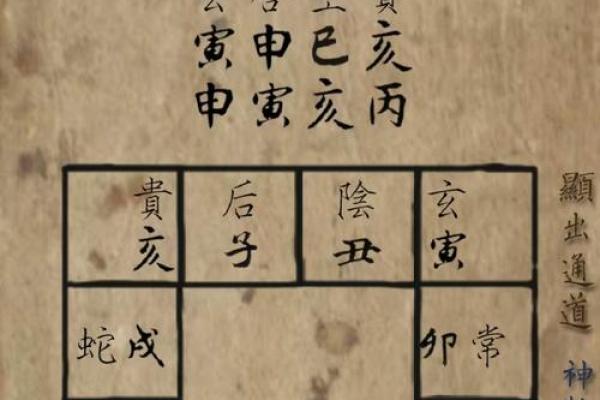 寅申巳亥
申寅亥丙
貴亥
后子
陰丑
玄寅
蛇戌
卯常
顯出通道
神